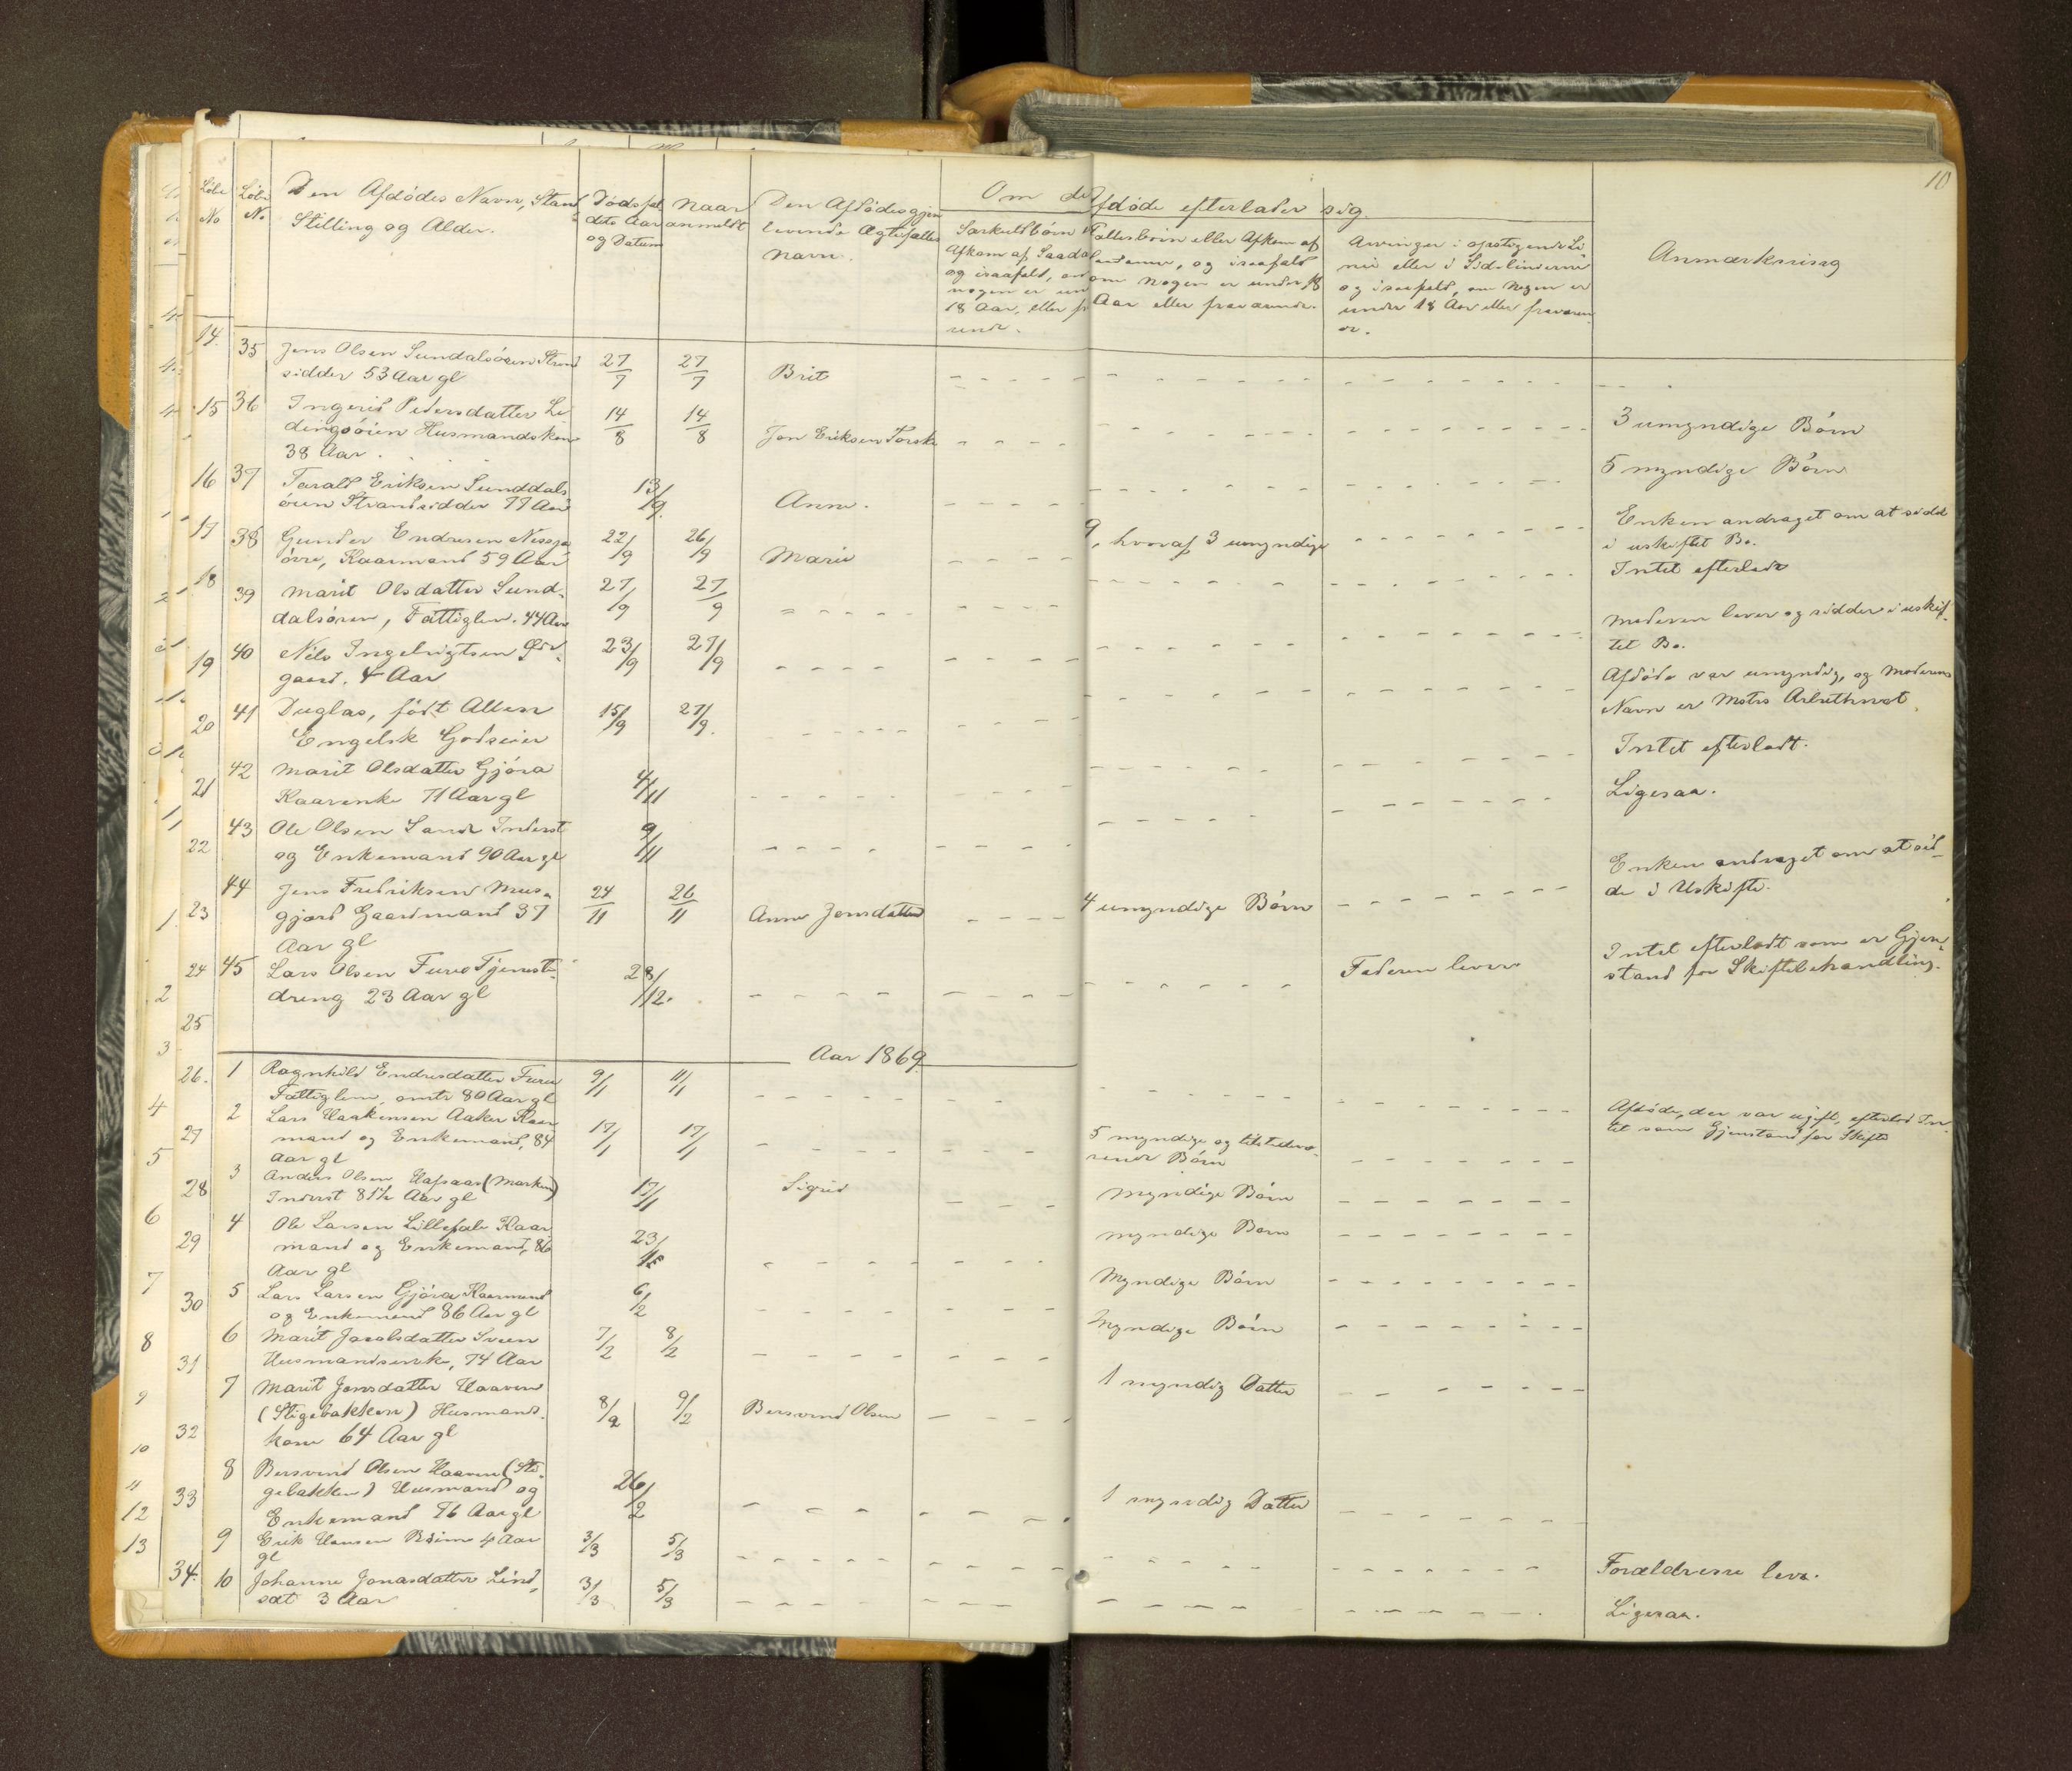 10
Løbe No
Løbe No.
Den Afdødes Navn, Stand
Stilling og Alder.
Dødsfal
dets Aar
og Datum
Naar
anmeldt
Den Afdødes gjen
levende Ægtefælles
Navn.
Om den Afdøde efterlader sig.
Særkuldbørn
Afkom af Saada
og isaafald, om
nogen er un
18 Aar, eller fr
rende.
Fællesbørn eller Afkom af
saadanne, og isaafald
om Nogen er under 18
Aar eller fraværende.
Arvinger i opstigende Li
nie eller i Sidelinierne
og isaafald, om Nogen er
under 18 Aar eller fraværen
de.
Anmærkning
35 Jens Olsen Sundalsøren Strand
sidder 53 Aar gl
27/7 27/7 Brit
36 Ingerid Pedersdatter Le
dingsøien Husmandskone
38 Aar.
14/8 14/8 Jon Eriksen
3 umyndige Børn
37 Tarald Eriksen Sunddals
øren Strandsidder 77 Aar
13/9 Anne.
5 myndige Børn
38 Gunder Endresen
øvre, Kaarmand 59 Aar
22/9 26/9 Marie
9, hvoraf 3 umyndige
Enken andraget om at sidde
i uskiftet Bo.
39 Marit Olsdatter Sund-
dalsøren, Fattiglem. 44 Aar
27/9 27/9
Intet efterladt
40 Nils Ingebrigtsen
gaard. 4 Aar
23/9 27/9
Moderen lever og sidder i uskif-
tet Bo.
41 Duglas, født Allen
Engelsk Godseier
15/9 27/9.
Afdøde var umyndig, og Moderens
Navn er Mstrs Arbuthnot
42 Marit Olsdatter Gjøra
Kaarenke 71 Aar gl
4/11
Intet efterladt.
43 Ole Olsen Sande Inderst
og Enkemand 90 Aar gl
9/11
Ligesaa.
44 Jens Fredriksen Mus-
gjerd Gaardmand 37
Aar gl
24/11 26/11 Anne Jensdatter
4 umyndige Børn
Enken andraget om at sid-
de i Uskifte.
45 Lars Olsen Furu Tjeneste-
dreng 23 Aar gl
28/12.
Faderen lever
Intet efterladt som er Gjen-
stand for Skiftebehandling.
Aar 1869
1 Ragnhild Endresdatter Furu
Fattiglem, omtr 80 Aar gl
9/1 11/1
Afdøde, der var ugift, efterlod In-
tet som Gjenstand for Skifte
2 Lars Haakensen Aaker Kaar-
mand og Enkemand, 84
Aar gl
17/1 17/1
5 myndige og tilstedevæ-
rende Børn
3 Anders Olsen Hafsaas (Marken)
Inderst 81½ Aar gl
17/1 Sigrid
Myndige Børn
4 Ole Larsen Lillefale Kaar
mand og Enkemand, 86
Aar gl
23/1
myndige Børn
5 Lars Larsen Gjøra Kaarmand
og Enkemand 86 Aar gl
6/2
Myndige Børn
6 Marit Jacobsdatter Sveen
Husmandsenke, 74 Aar
7/2 8/2
Myndige Børn
7 Marit Jonsdatter Haaven
(Stigebakken) Husmands-
kone 64 Aar gl
8/2 9/2 Bersvend Olsen
1 myndig Datter
8 Bersvend Olsen Haaven (Sti-
gebakken) Husmand og
Enkemand 76 Aar gl
26/2
1 myndig Datter
9 Erik Hansen 4 Aar
gl
3/3 5/3
Forældrene leve.
10 Johanne Jonasdatter Lind-
sæt 3 Aar
3/3 5/3
Ligesaa.
14.
15
16
17
18
19
20
21
22
23
24
25
26.
27
28
29
30
31
32
33
34.
1.
2
3
4
5
6
7
8
9
10
11
12
13